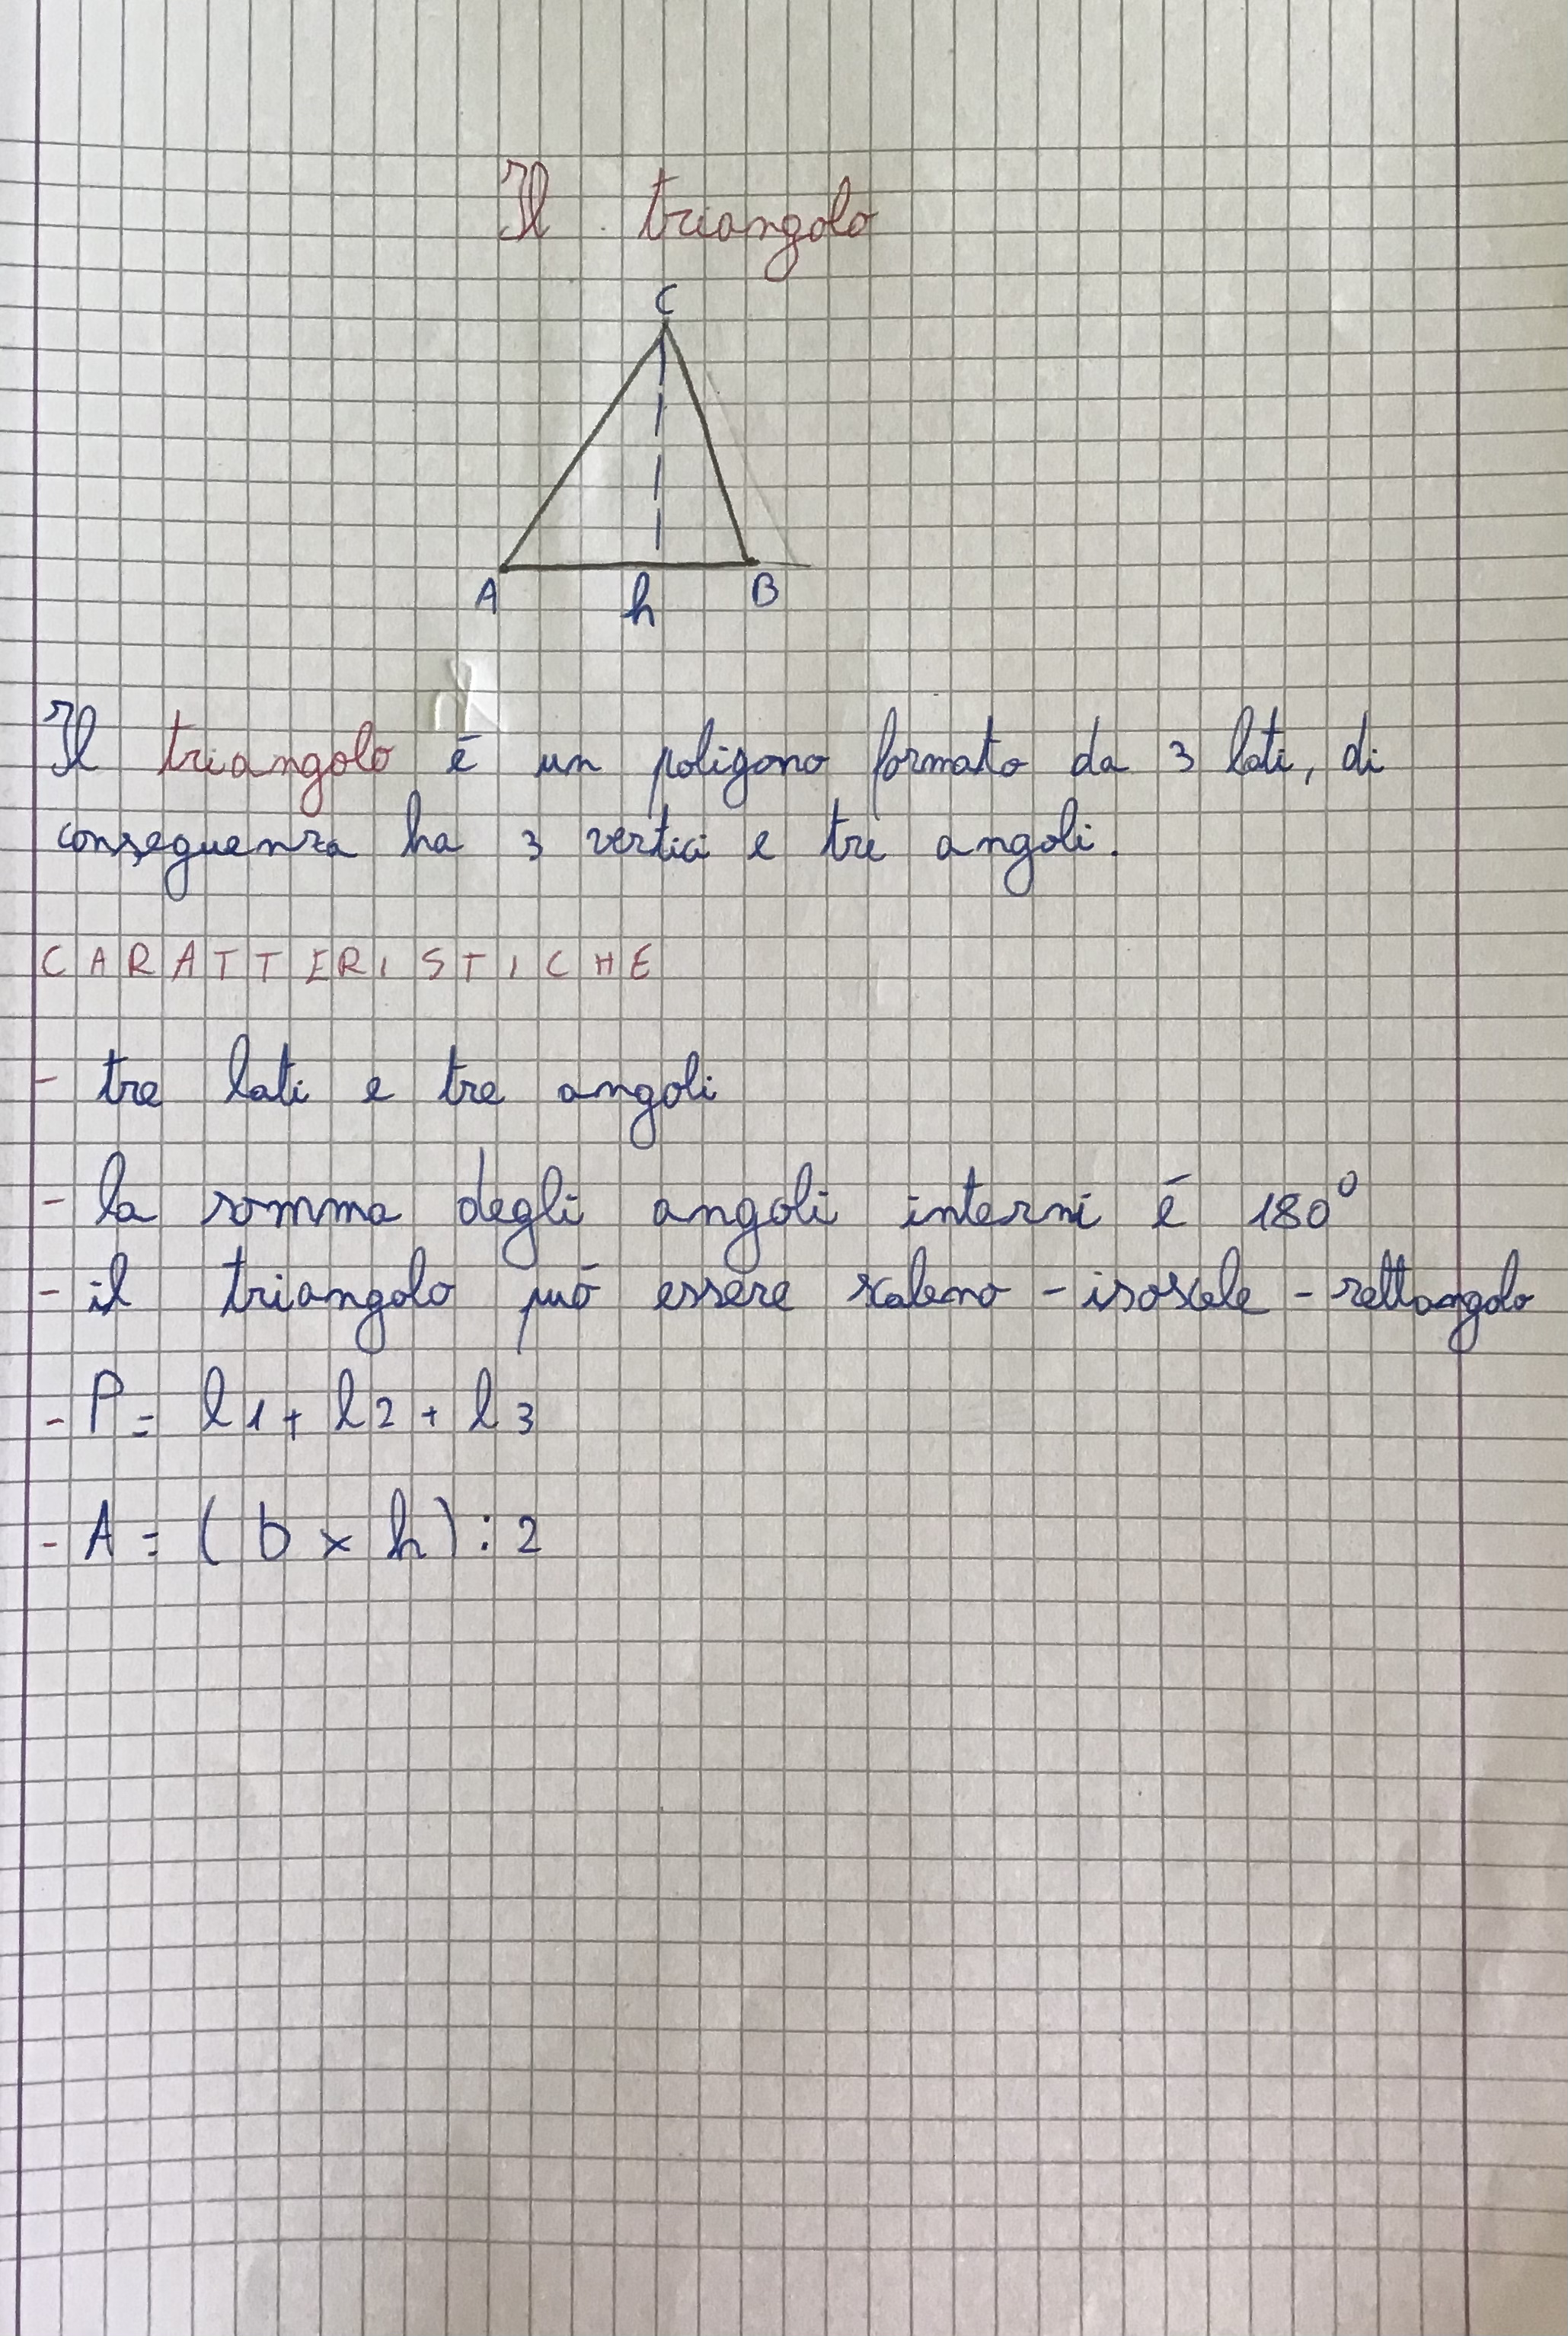 Il triangolo
C
A h B
Il triangolo é un poligono formato da 3 lati, di
conseguenza ha 3 vertici e tre angoli.
CARATTERISTICHE
- tre lati e tre angoli
- la somma degli angoli interni é 180°
- il triangolo può essere scaleno - isoscele - rettangolo
- P= l1+ l2+ l3
- A= (b x h):2